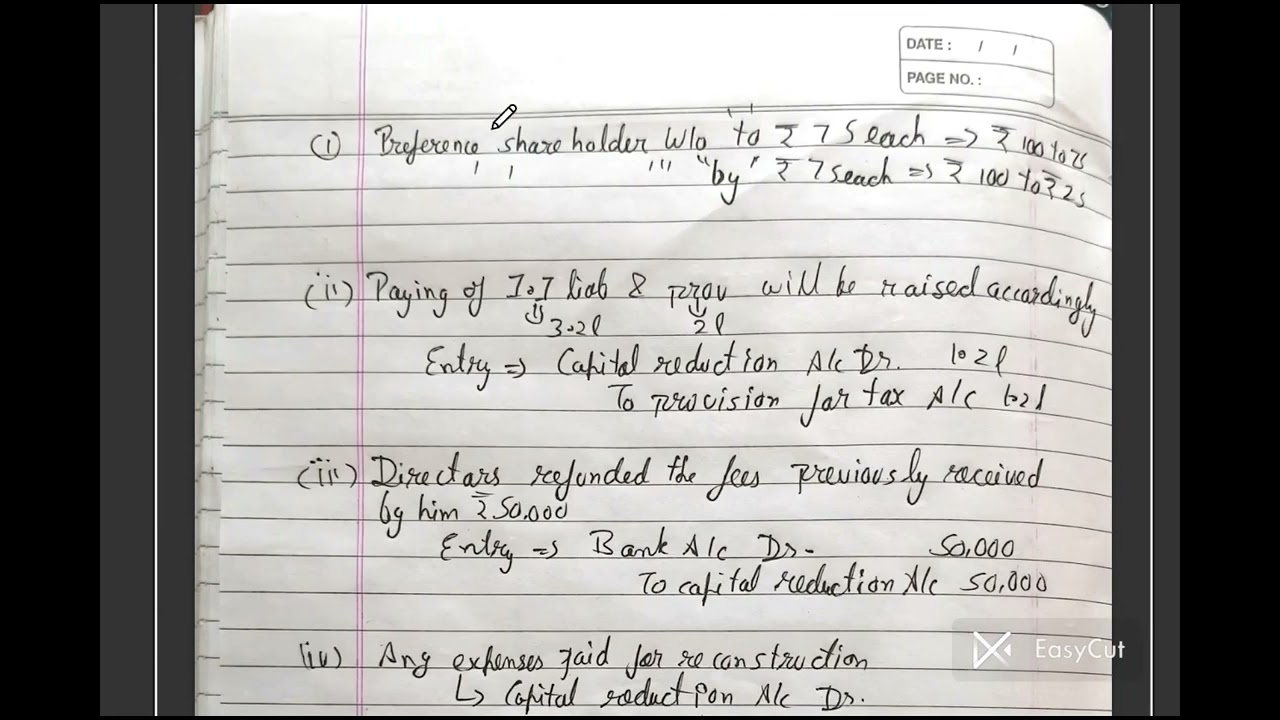 DATE : / /
PAGE NO. :
(i) Preference shareholder W/o to ₹ 75 each => ₹ 100 to 75
" " "by" ₹ 75 each => ₹ 100 to ₹ 25
(ii) Paying of I.T liab & prov will be raised accordingly
3.2l 2l
Entry => Capital reduction A/c Dr. 1.2l
To provision for tax A/c 1.2l
(iii) Directors refunded the fees previously received
by him ₹ 50,000
Entry => Bank A/c Dr. 50,000
To capital reduction A/c 50,000
(iv) Any expenses paid for reconstruction
↳ Capital reduction A/c Dr.
EasyCut